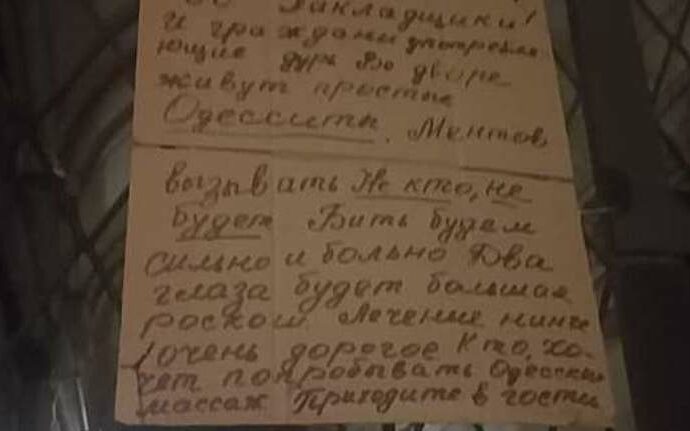 Закладщики!
и граждани употребля-
ющие дурь Во дворе
живут простые
Одесситы. Ментов,
вызывать Не кто, не
будет Бить будем
сильно и больно Два
глаза будет большая
роскош Лечение нинче
очень дорогое Кто, хо-
чет попробывать Одесский
массаж Приходите в гости